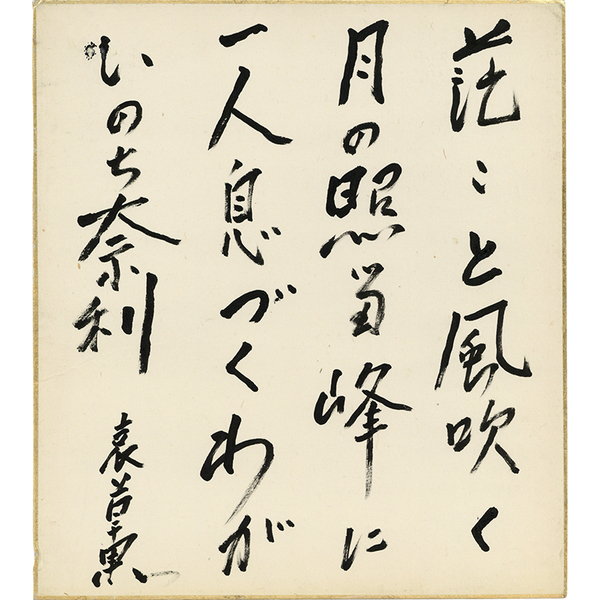 茫〻と風吹く
月の照留峰に
一人息づくわが
いのち奈利
哀草果